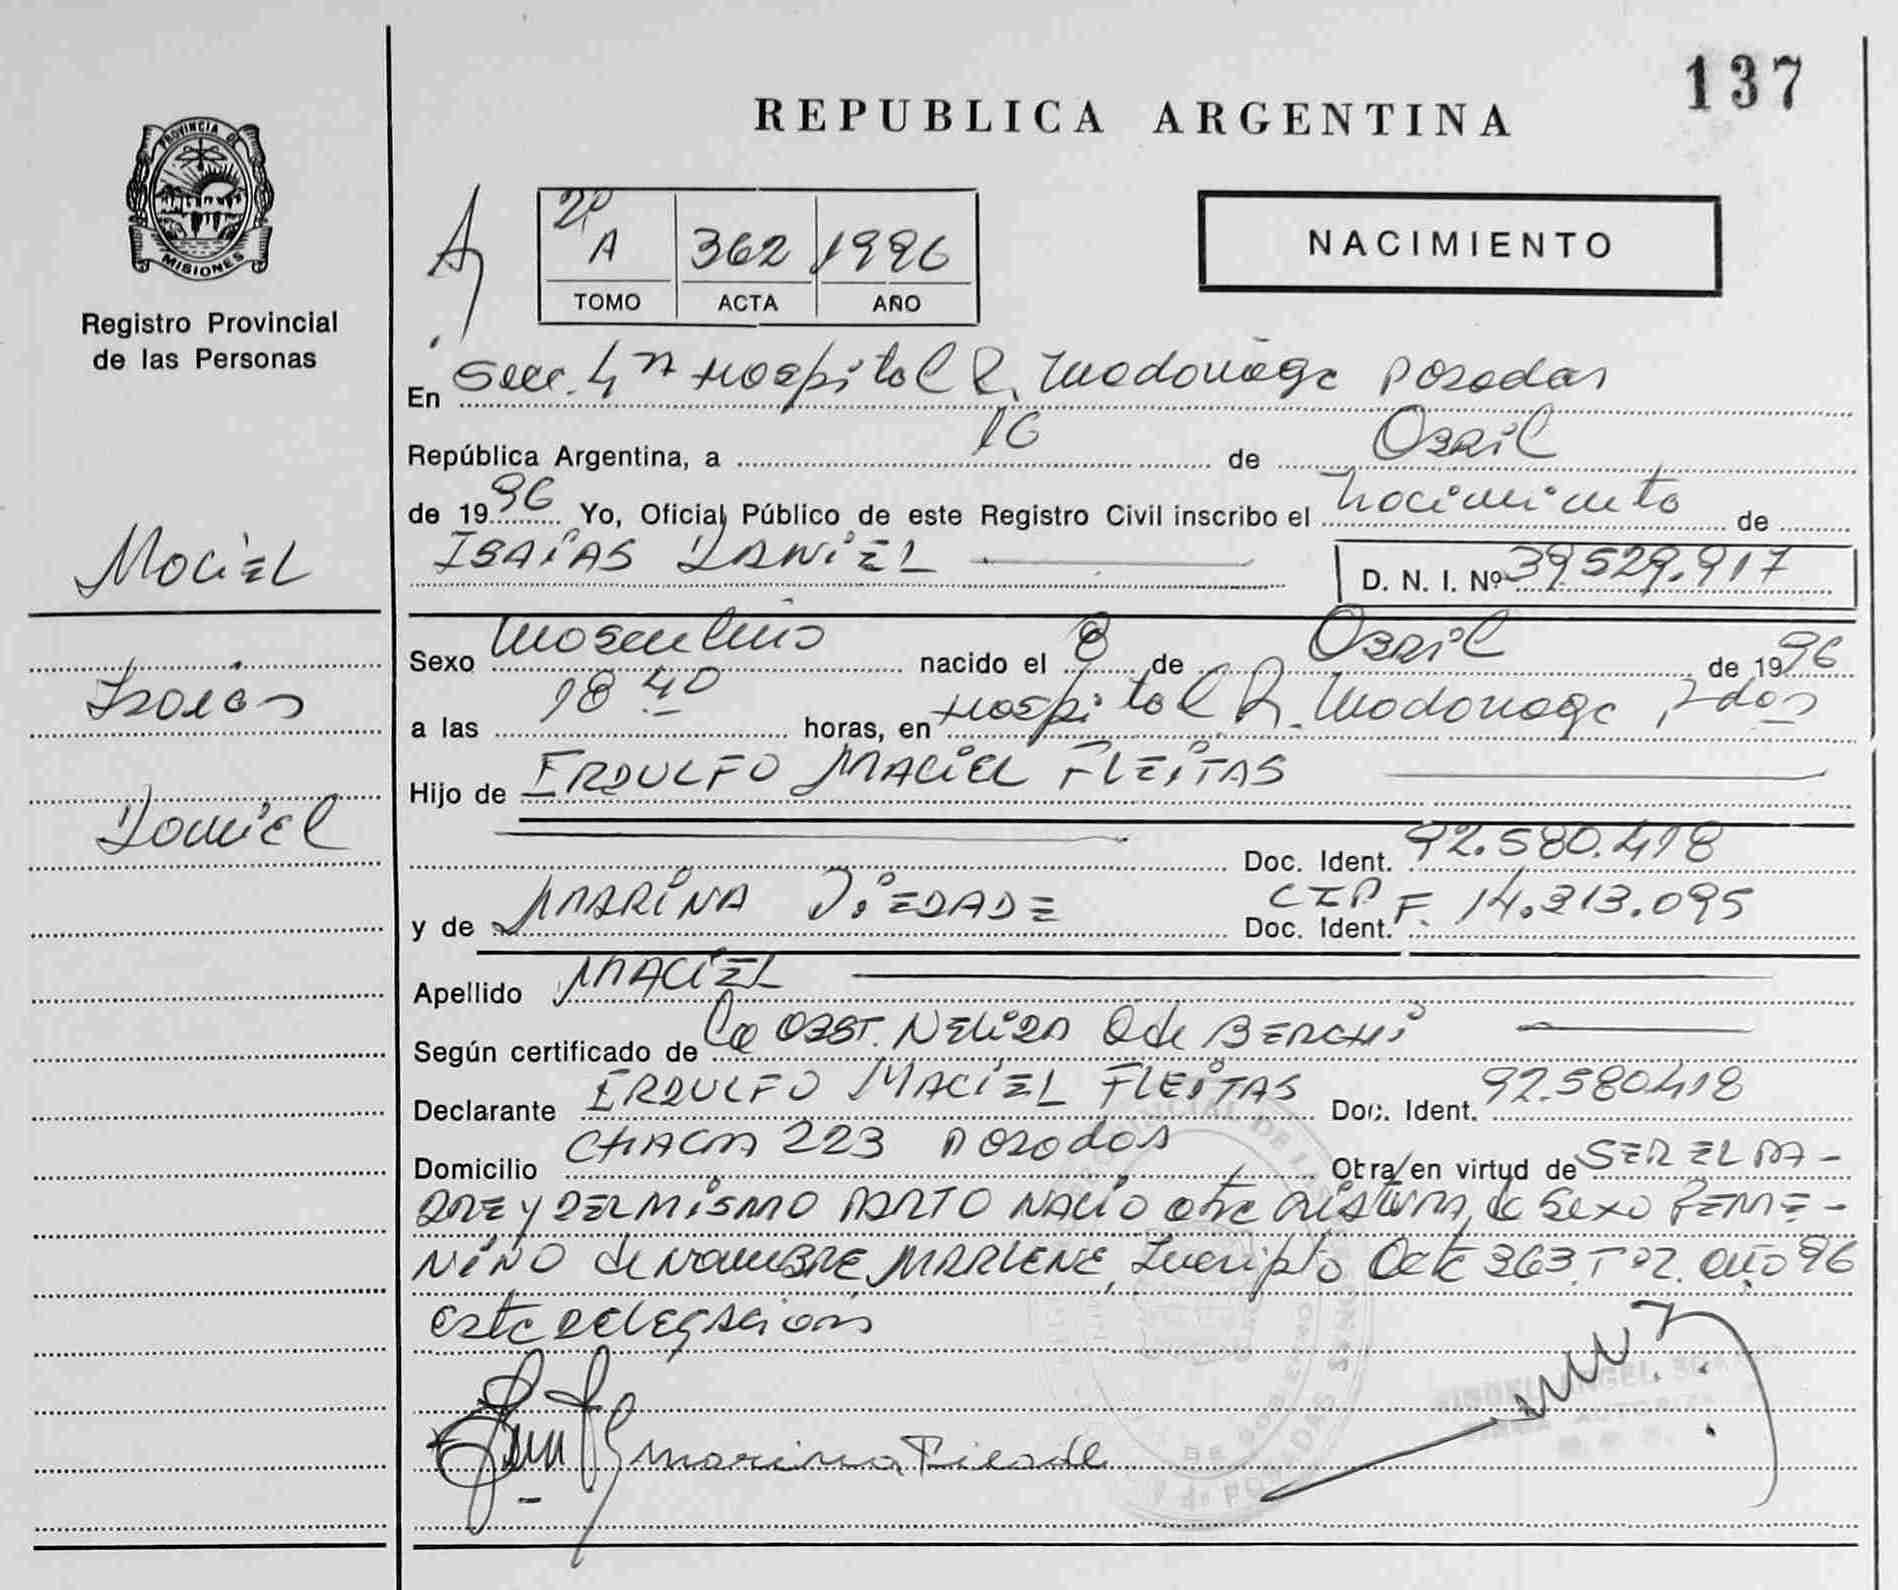 137
REPUBLICA ARGENTINA
PROVINCIA DE
MISIONES
Registro Provincial
de las Personas
2º
A 362 1996
TOMO ACTA AÑO
NACIMIENTO
En Secc. 4ª Hospital R. Madariaga Posadas
República Argentina, a 16 de Abril
de 1996 Yo, Oficial Público de este Registro Civil inscribo el nacimiento de
ISAIAS DANIEL D. N. I. Nº 39.529.917
Maciel
Isaias
Daniel
Sexo Masculino nacido el 8 de Abril de 1996
a las 18 40 horas, en Hospital R. Madariaga, Pdas
Hijo de ERDULFO MACIEL FLEITAS
Doc. Ident. 92.580.418
y de MARINA PIEDADE CIP F. Doc. Ident. 14.213.095
Apellido MACIEL
Según certificado de La OBST. NELIDA de BERCHI
Declarante ERDULFO MACIEL FLEITAS Doc. Ident. 92.580.418
Domicilio CHACRA 223 Posadas Obra en virtud de SER EL PA-
DRE Y DEL MISMO PARTO NACIO otra CRIATURA, de Sexo FEME-
NINO de NOMBRE MARLENE, Inscripto Acta 363. Tº 2. año 96
esta DELEGACION
Marina Piedade